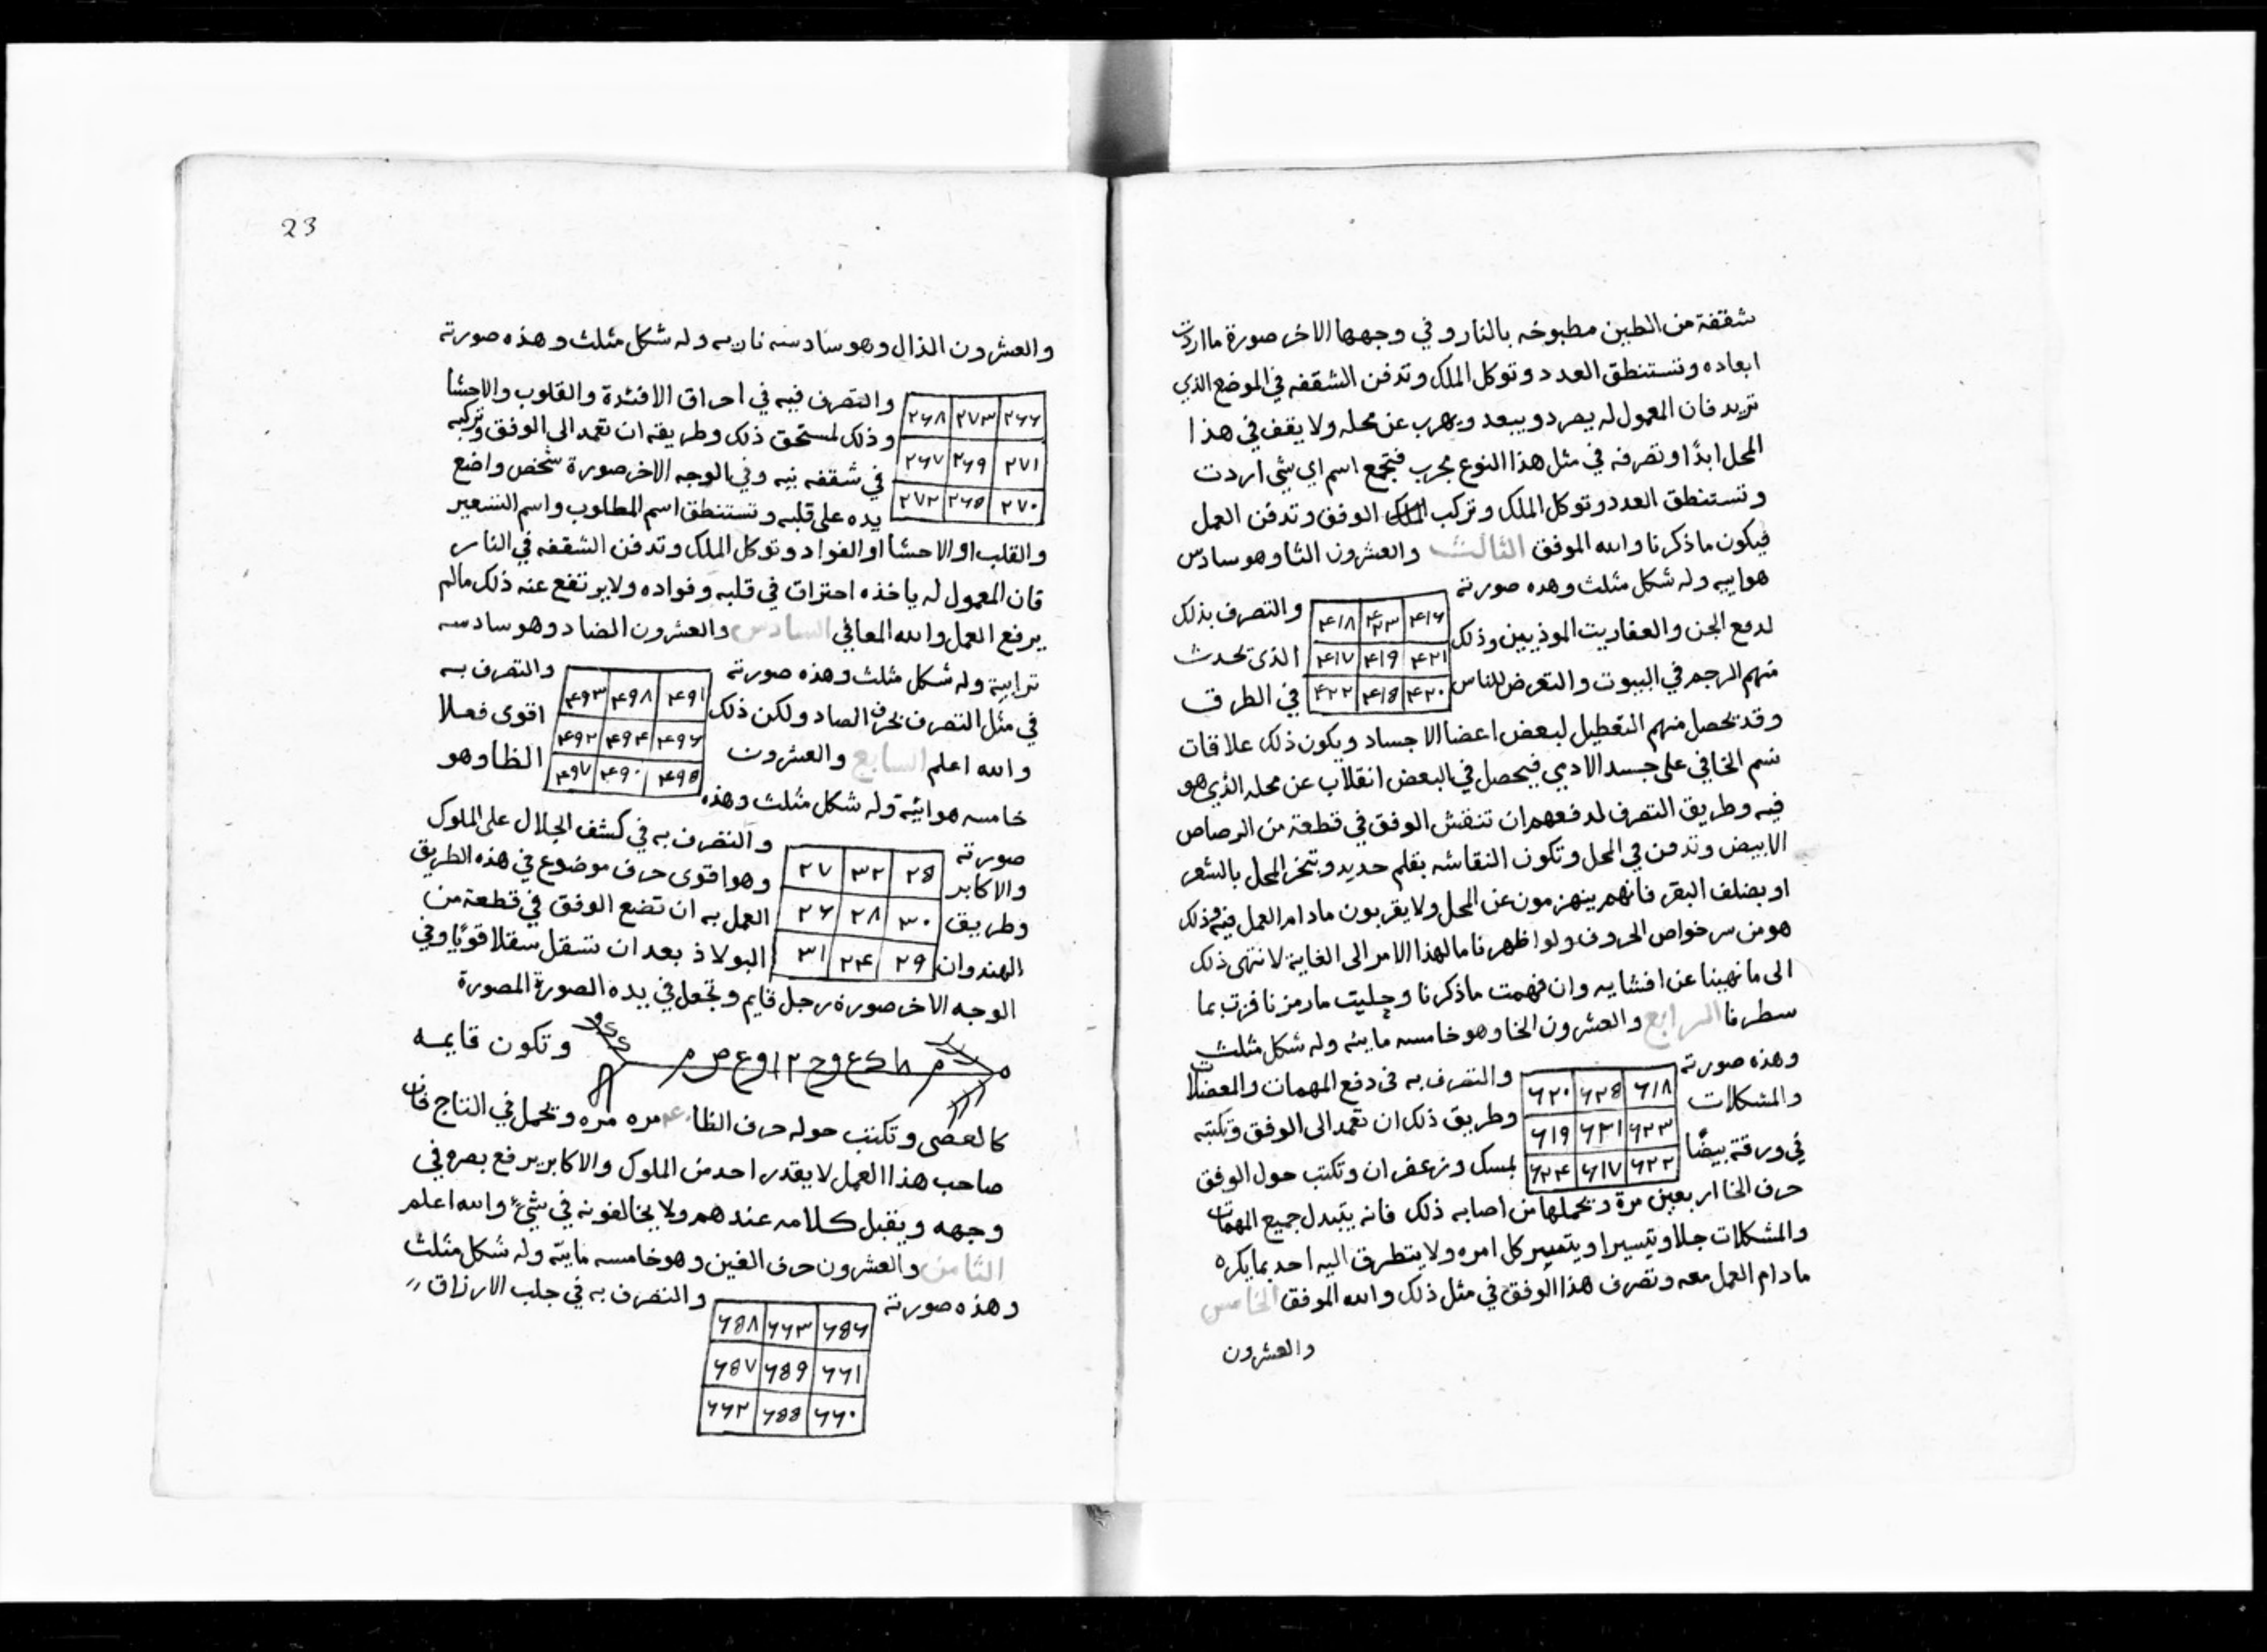 شقفة من الطين مطبوخه بالنار وفي وجهها الاخر صورة ما اردت
ابعاده وتستنطق العدد وتوكل الملك وتدفن الشقفه في الموضع الذي
تريد فان المعمول له يصرد ويبعد ويهرب عن محله ولا يقف في هذا
المحل ابدًا وتصرفه في مثل هذا النوع مجرب فتجمع اسم اي شي اردت
وتستنطق العدد وتوكل الملك وتركب الملك الوفق وتدفن العمل
فيكون ما ذكرنا والله الموفق الثالث والعشرون الثا وهو سادس
هواييه وله شكل مثلث وهذه صورته والتصرف بذلك
۴۱۶ ۴۲۳ ۴۱۸
لدفع الجن والعفاريت الموذيين وذلك الذي تحدث
۴۲۱ ۴۱۹ ۴۱۷
منهم الرجم في البيوت والتعرض للناس في الطرق
۴۲۰ ۴۱۵ ۴۲۲
وقد يحصل منهم التعطيل لبعض اعضا الاجساد ويكون ذلك علاقات
سم الخافي على جسد الادمي فيحصل في البعض انقلاب عن محله الذي هو
فيه وطريق التصرف لدفعهم ان تنقش الوفق في قطعة من الرصاص
الابيض وتدفن في المحل وتكون النقاشه بقلم حديد وتبخر المحل بالشعر
او بضلف البقر فانهم ينهزمون عن المحل ولا يقربون مادام العمل فيه وذلك
هو من سر خواص الحروف ولو اظهرنا ما لهذا الامر الى الغاية لانتهى ذلك
الى ما نهينا عن افشايه وان فهمت ما ذكرنا وحليت ما رمزنا فزت بما
سطرنا الرابع والعشرون الخا وهو خامسه مايئه وله شكل مثلث
وهذه صورته والتصرف به في دفع المهمات والمعضلات
۶۱۸ ۶۲۵ ۶۲۰
والمشكلات وطريق ذلك ان تعمد الى الوفق وتكتبه
۶۲۳ ۶۲۱ ۶۱۹
في ورقة بيضًا بمسك وزعفران وتكتب حول الوفق
۶۲۲ ۶۱۷ ۶۲۴
حرف الخا اربعين مرة وتحملها من اصابه ذلك فانه يتبدل جميع المهمات
والمشكلات جلا وتيسيرا ويتميز كل امره ولا يتطرق اليه احد بما يكره
مادام العمل معه وتصرف هذا الوفق في مثل ذلك والله الموفق الخامس
والعشرون
23
والعشرون الذال وهو سادسه ناريه وله شكل مثلث وهذه صورته
۲۶۶ ۲۷۳ ۲۶۸
والتصرف فيه في احراق الافئدة والقلوب والاحشا
وذلك لمستحق ذلك وطريقه ان تعمد الى الوفق وتركبه
۲۷۱ ۲۶۹ ۲۶۷
في شقفه نيه وفي الوجه الاخر صورة شخص واضع
۲۷۰ ۲۶۵ ۲۷۲
يده على قلبه وتستنطق اسم المطلوب واسم التسعير
والقلب او الاحشا او الفواد وتوكل الملك وتدفن الشقفه في النار
فان المعمول له ياخذه احتراق في قلبه وفواده ولا يرتفع عنه ذلك مالم
يرفع العمل والله المعافي السادس والعشرون الضاد وهو سادسه
ترابية وله شكل مثلث وهذه صورته والتصرف به
۴۹۱ ۴۹۸ ۴۹۳
في مثل التصرف بحرف الصاد ولكن ذلك اقوى فعلا
۴۹۶ ۴۹۴ ۴۹۲
والله اعلم السابع والعشرون الظا وهو
۴۹۵ ۴۹۰ ۴۹۷
خامسه هوائية وله شكل مثلث وهذه
صورته والتصرف به في كشف الجلال على الملوك
۲۵ ۳۲ ۲۷
والاكابر وهو اقوى حرف موضوع في هذه الطريق
۳۰ ۲۸ ۲۶
وطريق العمل به ان تضع الوفق في قطعة من
۲۹ ۲۴ ۳۱
الهندوان البولاذ بعد ان تسقل سقلا قويًا وفي
الوجه الاخر صورة رجل قايم وتجعل في يده الصورة المصورة
وتكون قايمه
كالعصى وتكتب حوله حرف الظا مره مره وتحمل في التاج فان
صاحب هذا العمل لا يقدر احد من الملوك والاكابر يرفع بصره في
وجهه ويقبل كلامه عندهم ولا يخالفونه في شيء والله اعلم
الثامن والعشرون حرف الغين وهو خامسه مايئة وله شكل مثلث
وهذه صورته والتصرف به في جلب الارزاق
۶۵۶ ۶۶۳ ۶۵۸
۶۶۱ ۶۵۹ ۶۵۷
۶۶۰ ۶۵۵ ۶۶۲